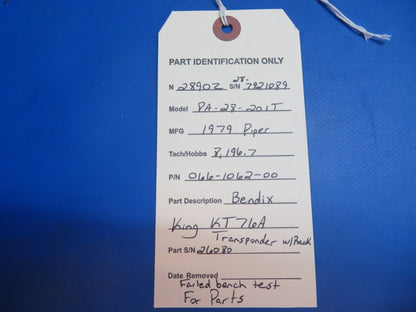 PART IDENTIFICATION ONLY
N 2890Z S/N 28-7921089
Model PA-28-201T
MFG 1979 Piper
Tach/Hobbs 8,196.7
P/N 066-1062-00
Part Description Bendix
King KT76A
Transponder w/Rack
Part S/N 26080
Date Removed
Failed bench test
For Parts